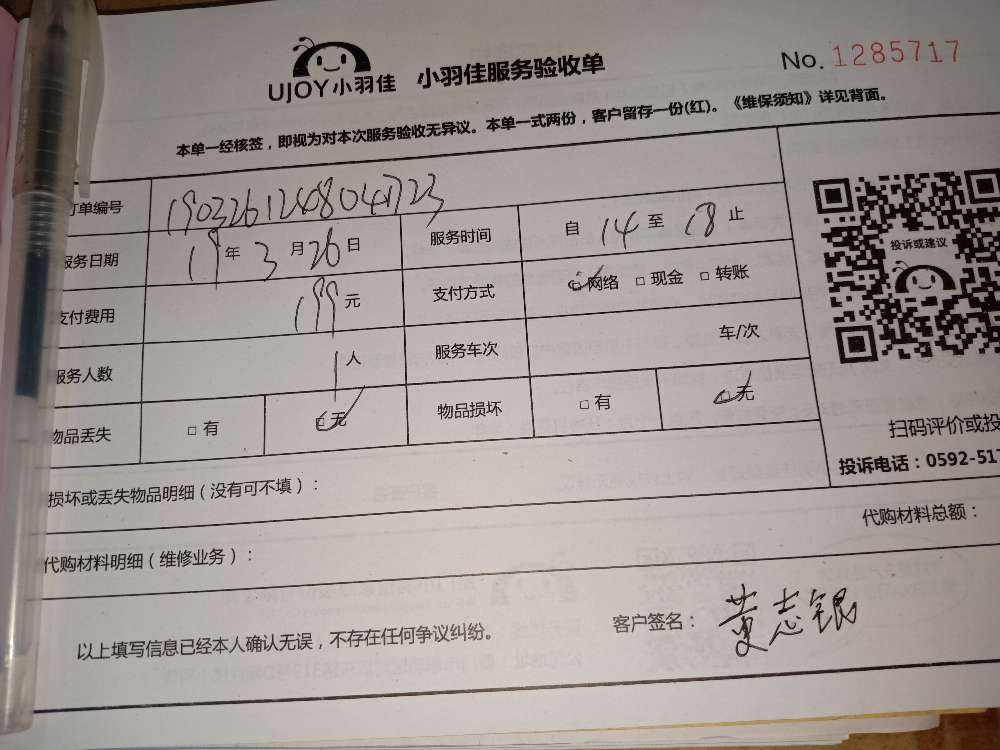 UJOY小羽佳 小羽佳服务验收单 No. 1285717
本单一经核签，即视为对本次服务验收无异议。本单一式两份，客户留存一份(红)。《维保须知》详见背面。
订单编号 190326124808041723
服务日期 19年3月26日 服务时间 自 14 至 18 止
支付费用 199元 支付方式 □网络 □现金 □转账
服务人数 1人 服务车次 车/次
物品丢失 □有 □无 物品损坏 □有 □无
投诉或建议
扫码评价或投
投诉电话：0592-517
损坏或丢失物品明细（没有可不填）：
代购材料明细（维修业务）： 代购材料总额：
以上填写信息已经本人确认无误，不存在任何争议纠纷。 客户签名：黄志银